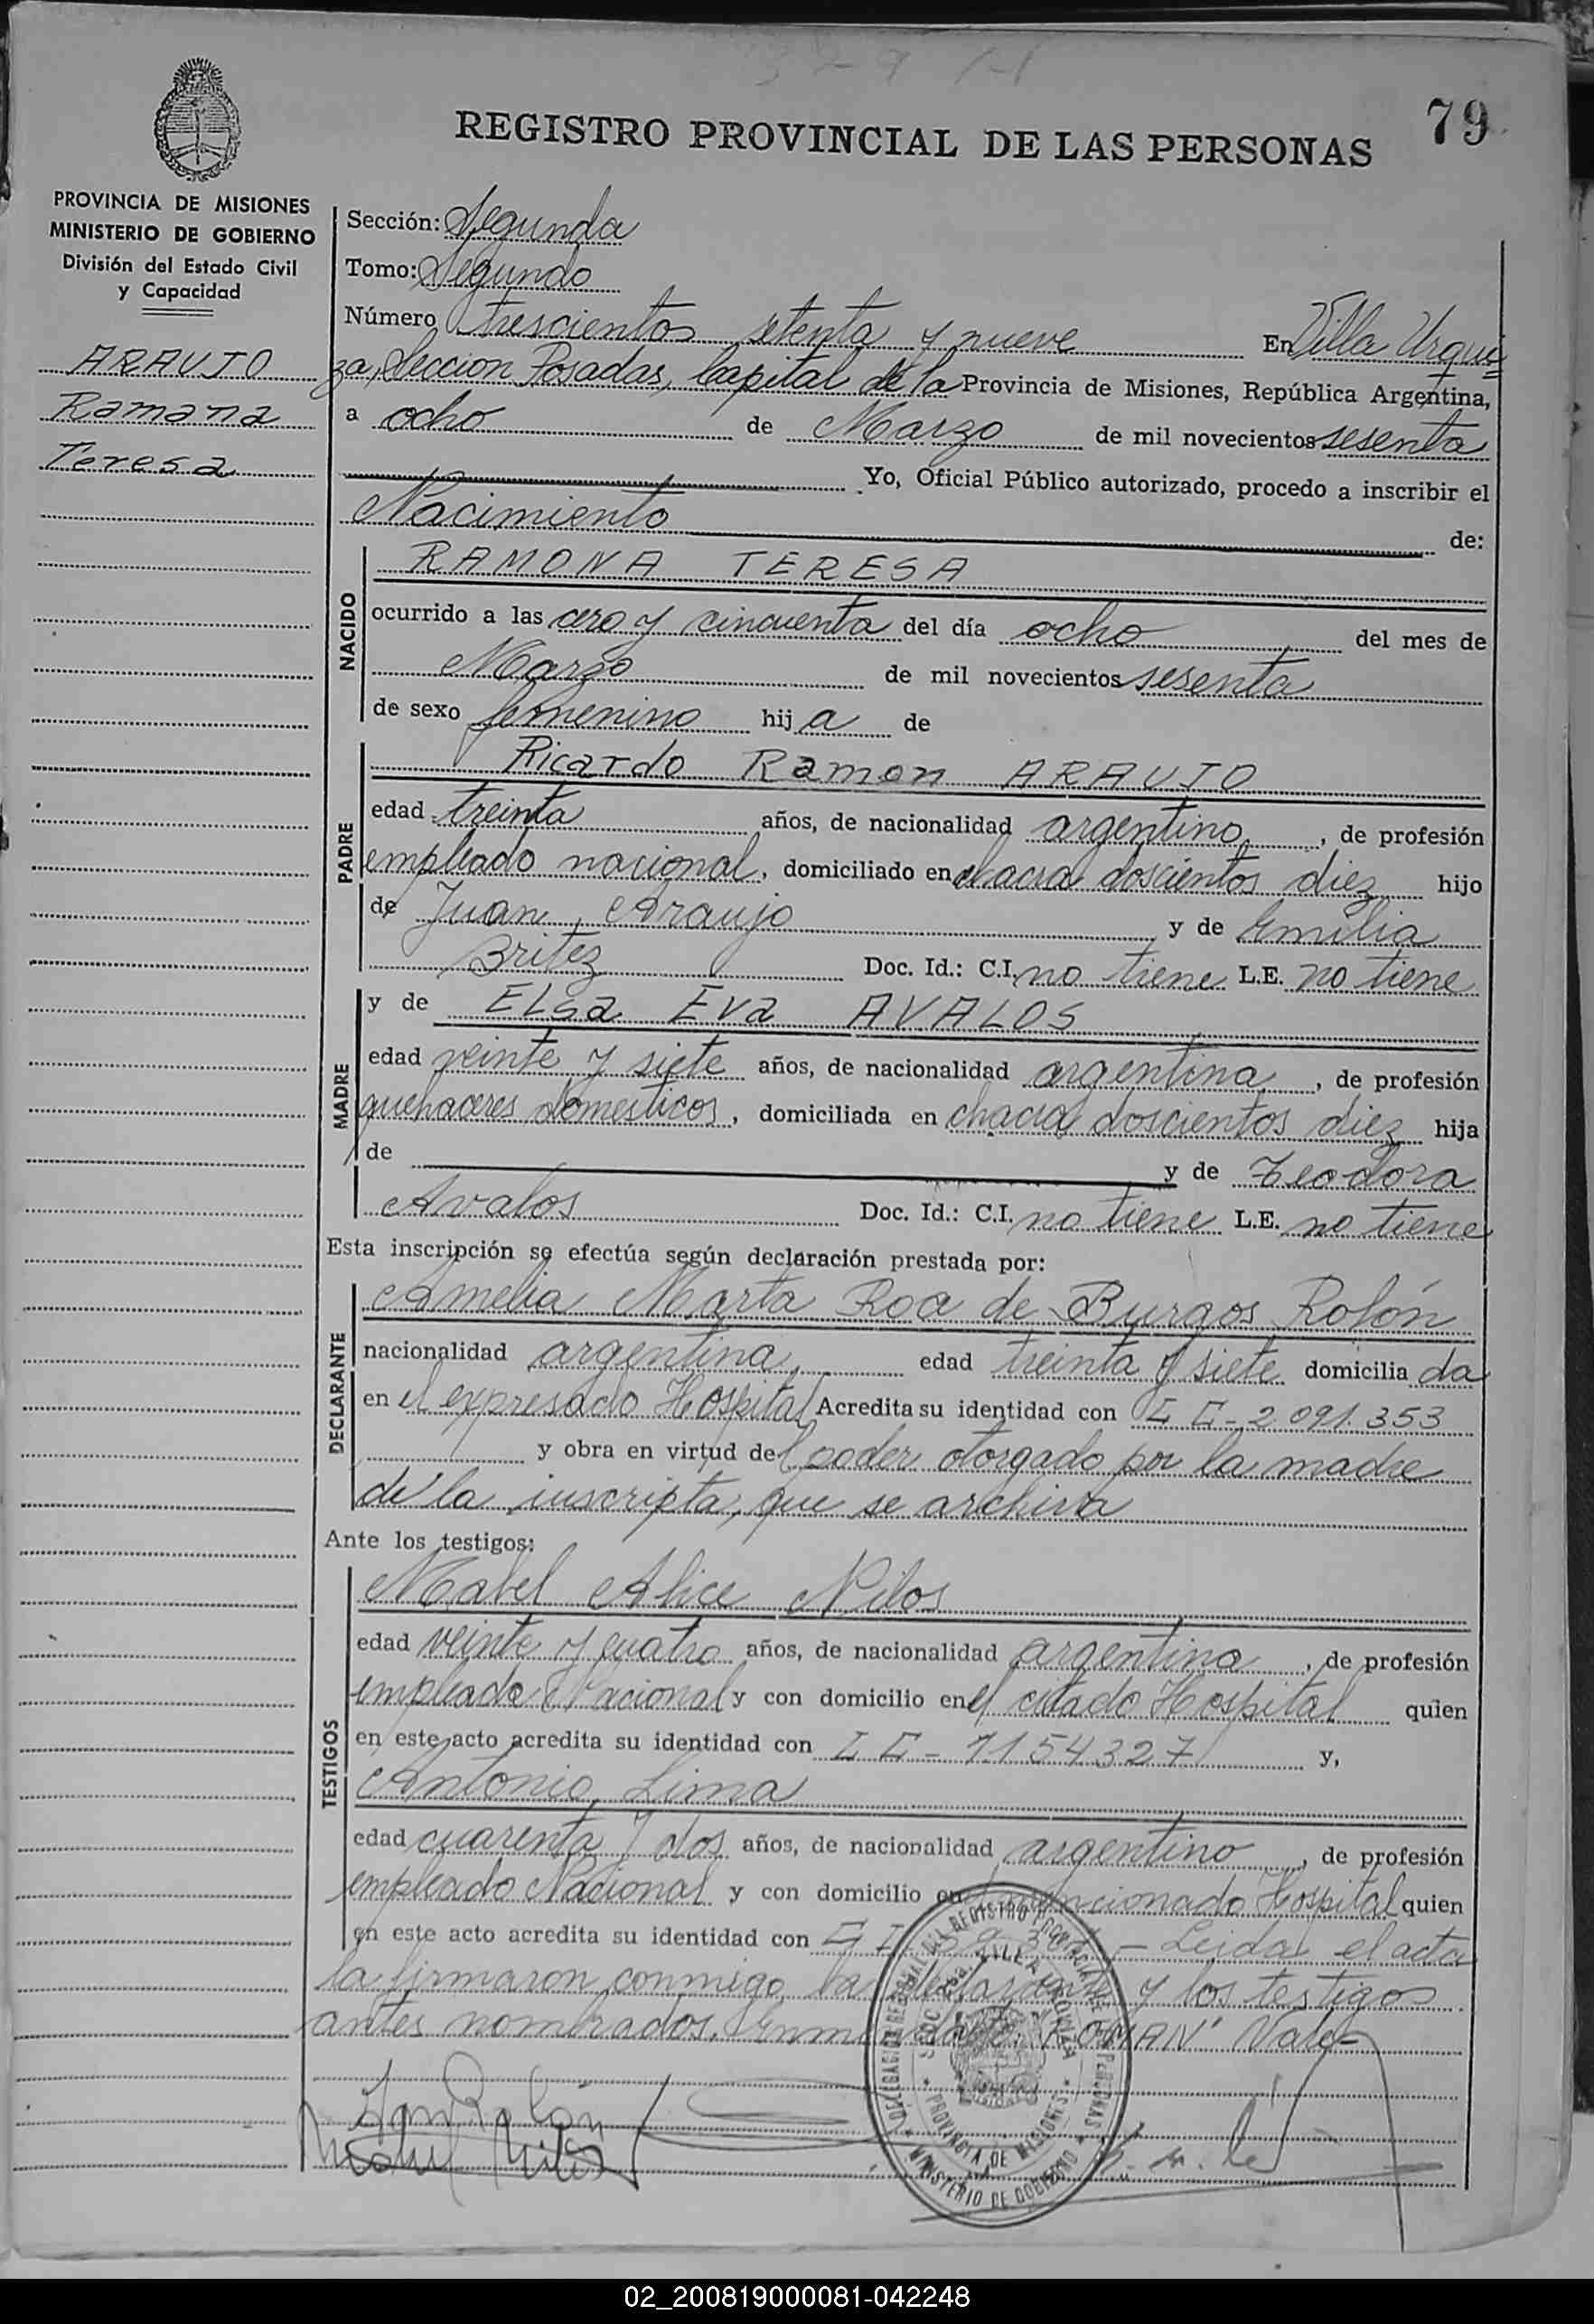 79
REGISTRO PROVINCIAL DE LAS PERSONAS
PROVINCIA DE MISIONES
MINISTERIO DE GOBIERNO
División del Estado Civil
y Capacidad
ARAUJO
Ramona
Teresa
Sección: Segunda
Tomo: Segundo
Número trescientos setenta y nueve En Villa Urqui=
za, Seccion Posadas, Capital de la Provincia de Misiones, República Argentina,
a ocho de Marzo de mil novecientos sesenta
Yo, Oficial Público autorizado, procedo a inscribir el
Nacimiento de:
NACIDO
RAMONA TERESA
ocurrido a las cero y cincuenta del día ocho del mes de
Marzo de mil novecientos sesenta
de sexo femenino hija de
PADRE
Ricardo Ramon ARAUJO
edad treinta años, de nacionalidad argentino, de profesión
empleado nacional, domiciliado en chacra doscientos diez hijo
de Juan Araujo y de Emilia
Britez Doc. Id.: C.I. no tiene L.E. no tiene
MADRE
y de ELsa Eva AVALOS
edad veinte y siete años, de nacionalidad argentina, de profesión
quehaceres domesticos, domiciliada en chacra doscientos diez hija
de y de Teodora
Avalos Doc. Id.: C.I. no tiene L.E. no tiene
Esta inscripción se efectúa según declaración prestada por:
DECLARANTE
Amelia Marta Roa de Burgos Rolón
nacionalidad argentina, edad treinta y siete domiciliada
en el expresado Hospital Acredita su identidad con L C - 2.091.353
y obra en virtud del poder otorgado por la madre
de la inscripta, que se archiva
Ante los testigos:
TESTIGOS
Mabel Alice Nilos
edad veinte y cuatro años, de nacionalidad argentina, de profesión
empleada Nacional y con domicilio en el citado Hospital quien
en este acto acredita su identidad con L C - 1154327 y,
Antonio Lima
edad cuarenta y dos años, de nacionalidad argentino, de profesión
empleado Nacional y con domicilio en mencionado Hospital quien
en este acto acredita su identidad con C I - Leida el acta
la firmaron conmigo la declarante y los testigos
antes nombrados. ROMAN Vale
DELEGACION REGIONAL DEL REGISTRO PROVINCIAL DE LAS PERSONAS
VILLA URQUIZA
PROVINCIA DE MISIONES
MINISTERIO DE GOBIERNO
02_200819000081-042248